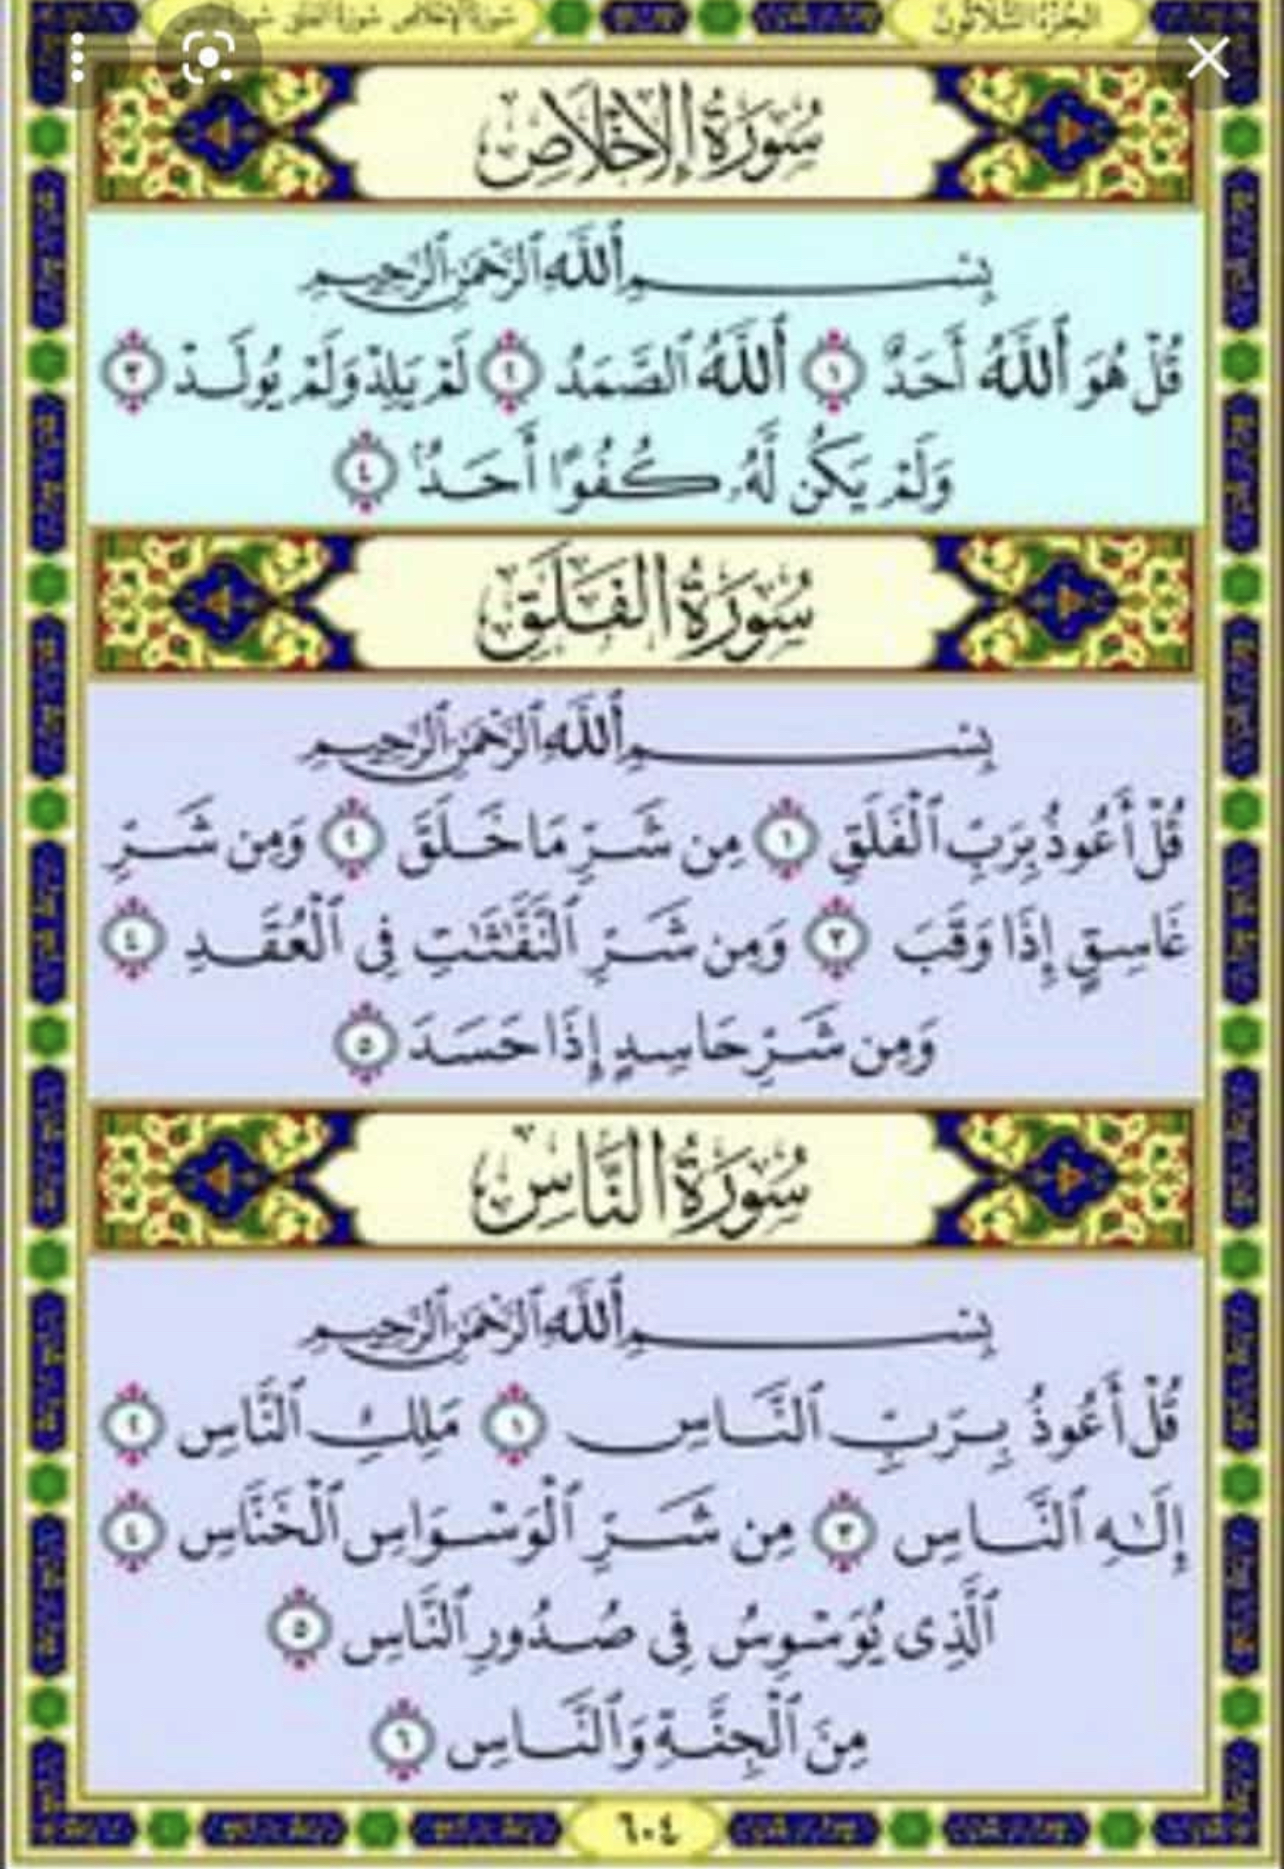 الجزء الثلاثون
سورة الإخلاص سورة الفلق سورة
سُورَةُ الإِخْلَاصِ
بِسْمِ ٱللَّهِ ٱلرَّحْمَٰنِ ٱلرَّحِيمِ
قُلْ هُوَ ٱللَّهُ أَحَدٌ ١ ٱللَّهُ ٱلصَّمَدُ ٢ لَمْ يَلِدْ وَلَمْ يُولَدْ ٣
وَلَمْ يَكُن لَّهُۥ كُفُوًا أَحَدٌۢ ٤
سُورَةُ الفَلَقِ
بِسْمِ ٱللَّهِ ٱلرَّحْمَٰنِ ٱلرَّحِيمِ
قُلْ أَعُوذُ بِرَبِّ ٱلْفَلَقِ ١ مِن شَرِّ مَا خَلَقَ ٢ وَمِن شَرِّ
غَاسِقٍ إِذَا وَقَبَ ٣ وَمِن شَرِّ ٱلنَّفَّٰثَٰتِ فِى ٱلْعُقَدِ ٤
وَمِن شَرِّ حَاسِدٍ إِذَا حَسَدَ ٥
سُورَةُ النَّاسِ
بِسْمِ ٱللَّهِ ٱلرَّحْمَٰنِ ٱلرَّحِيمِ
قُلْ أَعُوذُ بِرَبِّ ٱلنَّاسِ ١ مَلِكِ ٱلنَّاسِ ٢
إِلَٰهِ ٱلنَّاسِ ٣ مِن شَرِّ ٱلْوَسْوَاسِ ٱلْخَنَّاسِ ٤
ٱلَّذِى يُوَسْوِسُ فِى صُدُورِ ٱلنَّاسِ ٥
مِنَ ٱلْجِنَّةِ وَٱلنَّاسِ ٦
٦٠٤